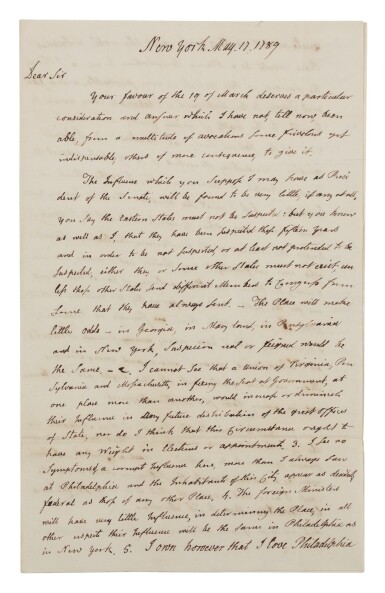 New York May. 17. 1789
Dear Sir
Your favour of the 19 of March deserves a particular
consideration and answer which I have not, till now been
able, from a multitude of avocations some frivolous yet
indispensable, others of more consequence, to give it.
The Influence which you Suppose I may have as Presi
dent of the Senate, will be found to be very little, if any at all,
you Say the Eastern States must not be Suspected: but you know
as well as I, that they have been suspected these fifteen Years
and in order to be not suspected or at least not pretended to be
Suspected, either they or Some other States must not exist, un
less those other States Send different Members to Congress from
Some that they have always Sent. - This Place will make
little odds - in Georgia, in Maryland, in Pensylvania
and in New York, Suspicion real or feigned would be
the Same. - 2. I cannot See that a Union of Virginia, Pen
Sylvania and Massachusetts in fixing the Seat of Government, at
one place more than another, would increase or diminish
their Influence in any future distribution of the great offices
of State, nor do I think that this Circumstance ought to
have any Weight in Elections or appointments. 3. I See no
Symptoms of a corrupt Influence here, more than I always Saw
at Philadelphia and the Inhabitants of this City appear as decidedly
fœderal as those of any other Place. 4. The foreign Ministers
will have very little Influence, in determining the Place, in all
other respects their Influence will be the Same in Philadelphia as
in New York. 5. I own however that I love Philadelphia